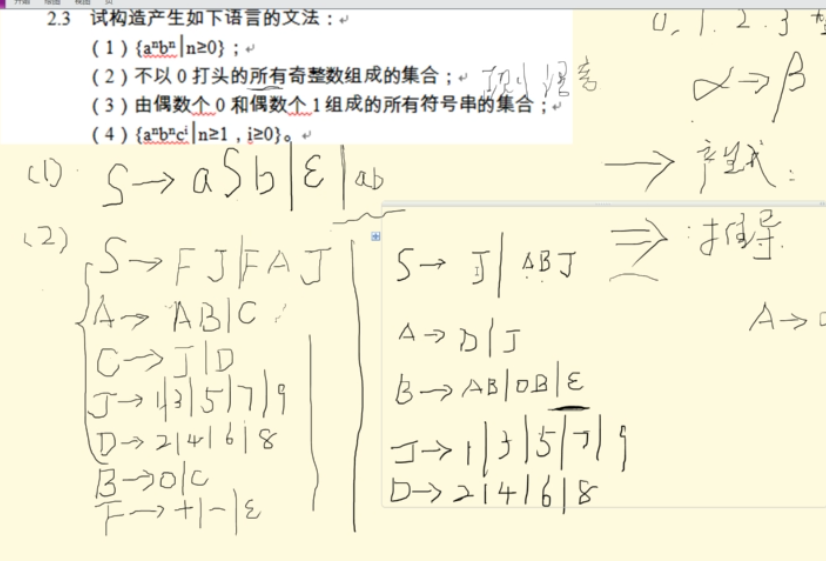 2.3 试构造产生如下语言的文法：
(1) {aⁿbⁿ|n≥0}；
(2) 不以 0 打头的所有奇整数组成的集合；
(3) 由偶数个 0 和偶数个 1 组成的所有符号串的集合；
(4) {aⁿbⁿcⁱ|n≥1，i≥0}。
0, 1, 2, 3 型
语言
α → β
→ 产生式：
⇒ ：推导.
A →
(1) S → aSb|ε|ab
(2) S → FJ|FAJ
A → AB|C
C → J|D
J → 1|3|5|7|9
D → 2|4|6|8
B → 0|C
F → +|-|ε
S → J|ABJ
A → D|J
B → AB|0B|ε
J → 1|3|5|7|9
D → 2|4|6|8